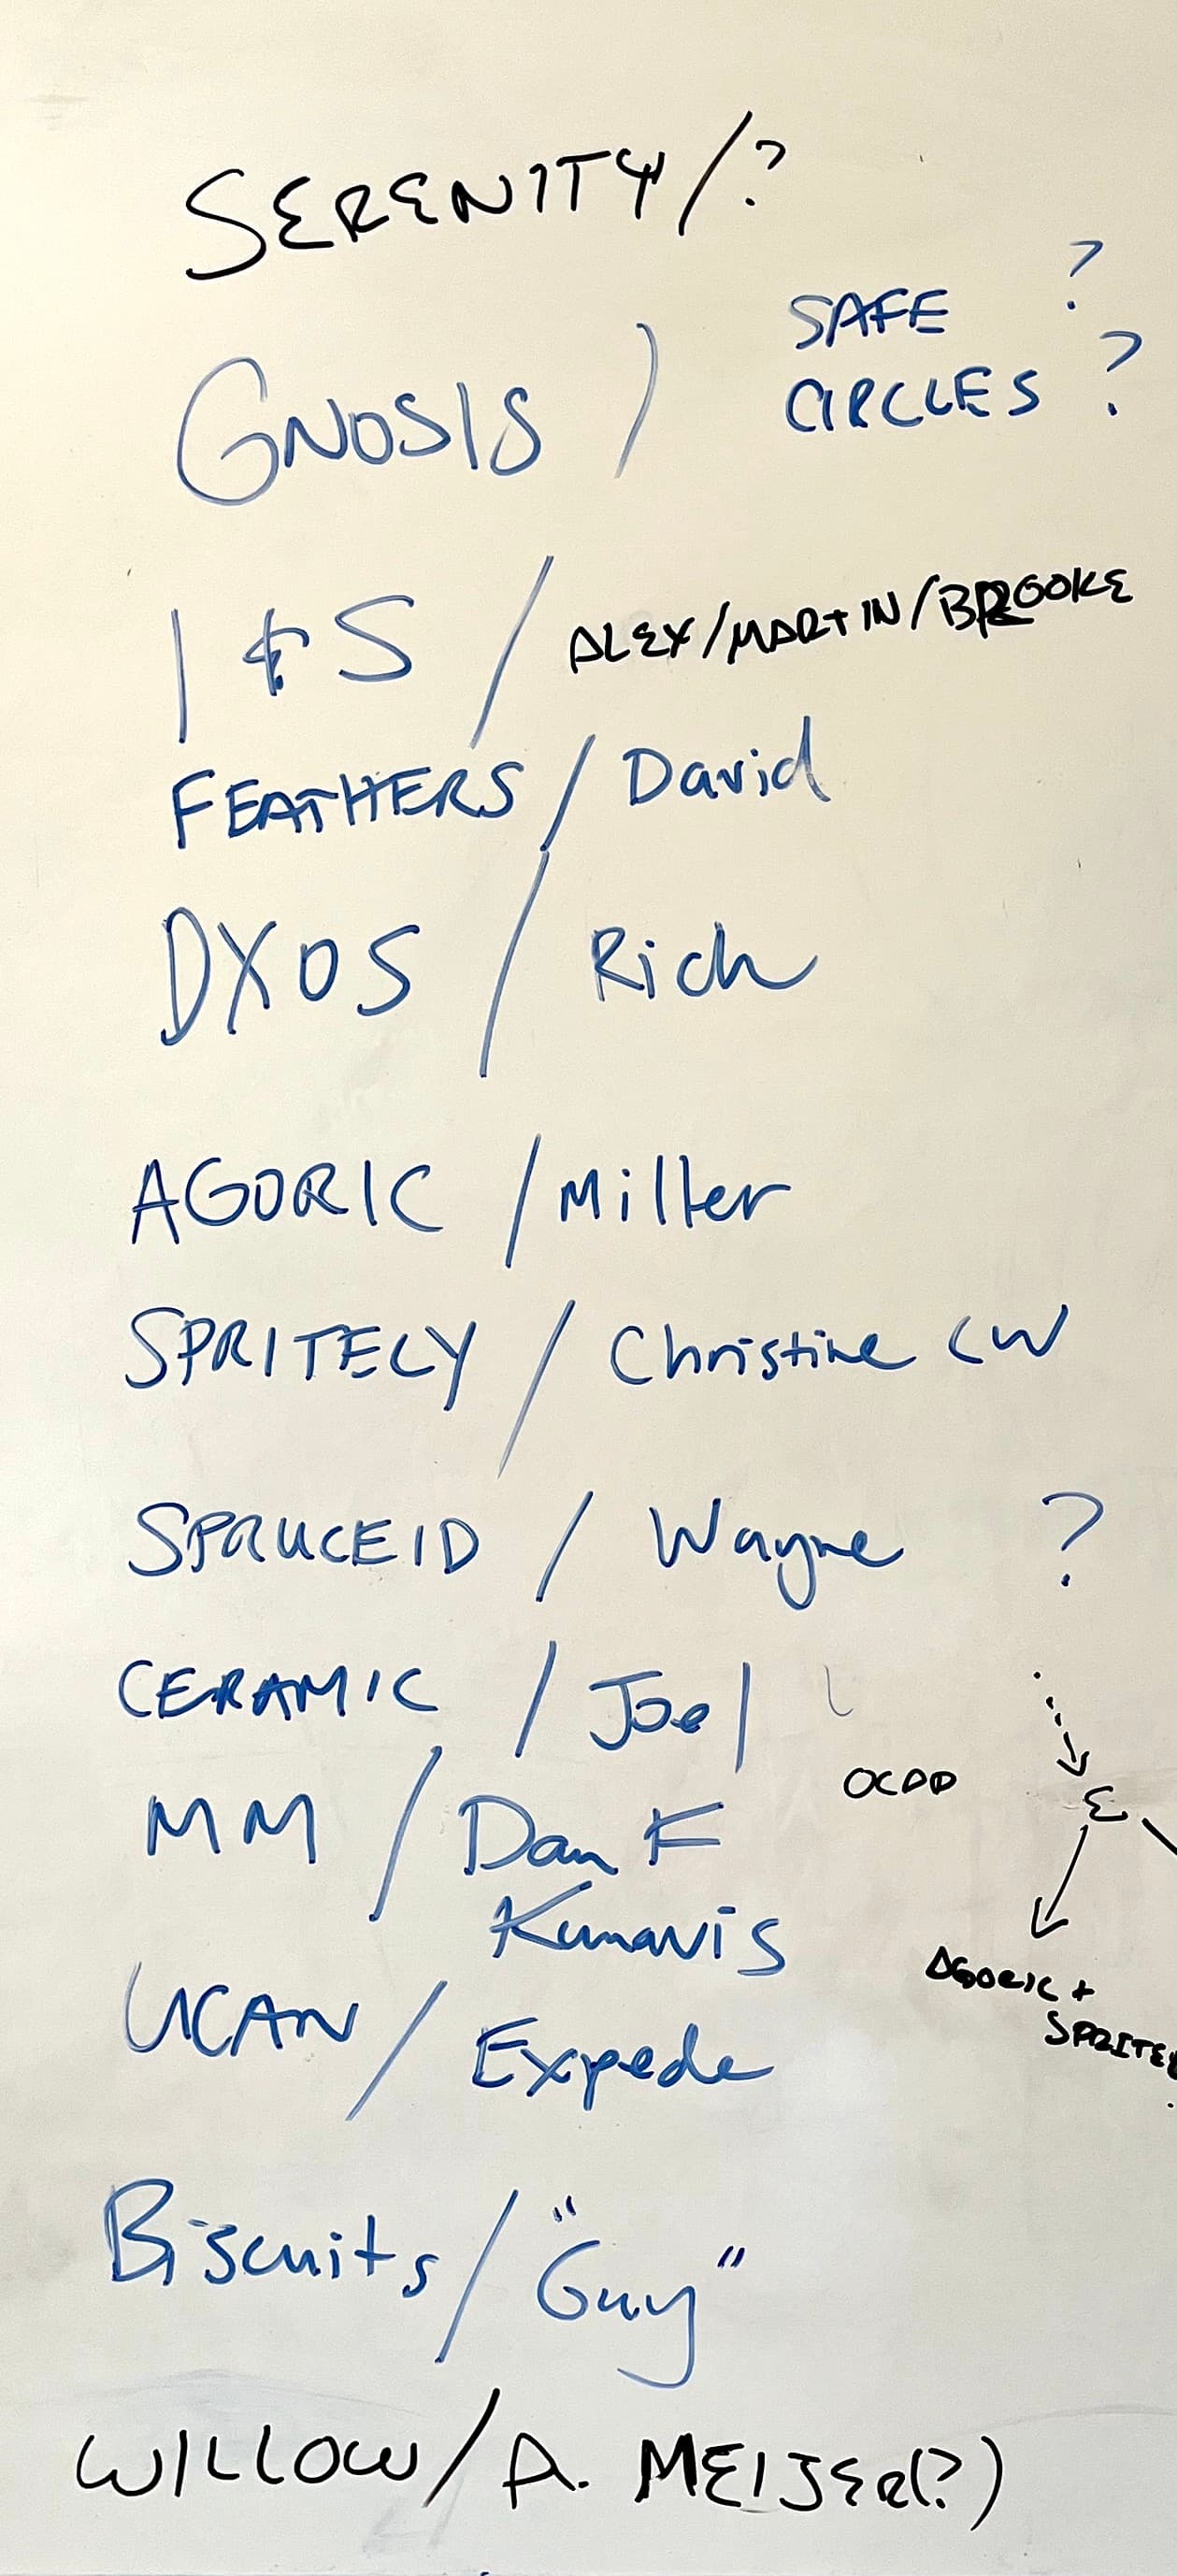 SERENITY/?
GNOSIS / SAFE ?
CIRCLES ?
I & S / ALEX/MARTIN/BROOKE
FEATHERS / David
DXOS / Rich
AGORIC / Miller
SPRITELY / Christine CW
SPRUCEID / Wayne ?
CERAMIC / Joel
MM / Dan F
Kumavis
OCAP
E
AGORIC +
SPRITE
UCAN / Expede
Biscuits / "Guy"
WILLOW / A. MEIJER(?)